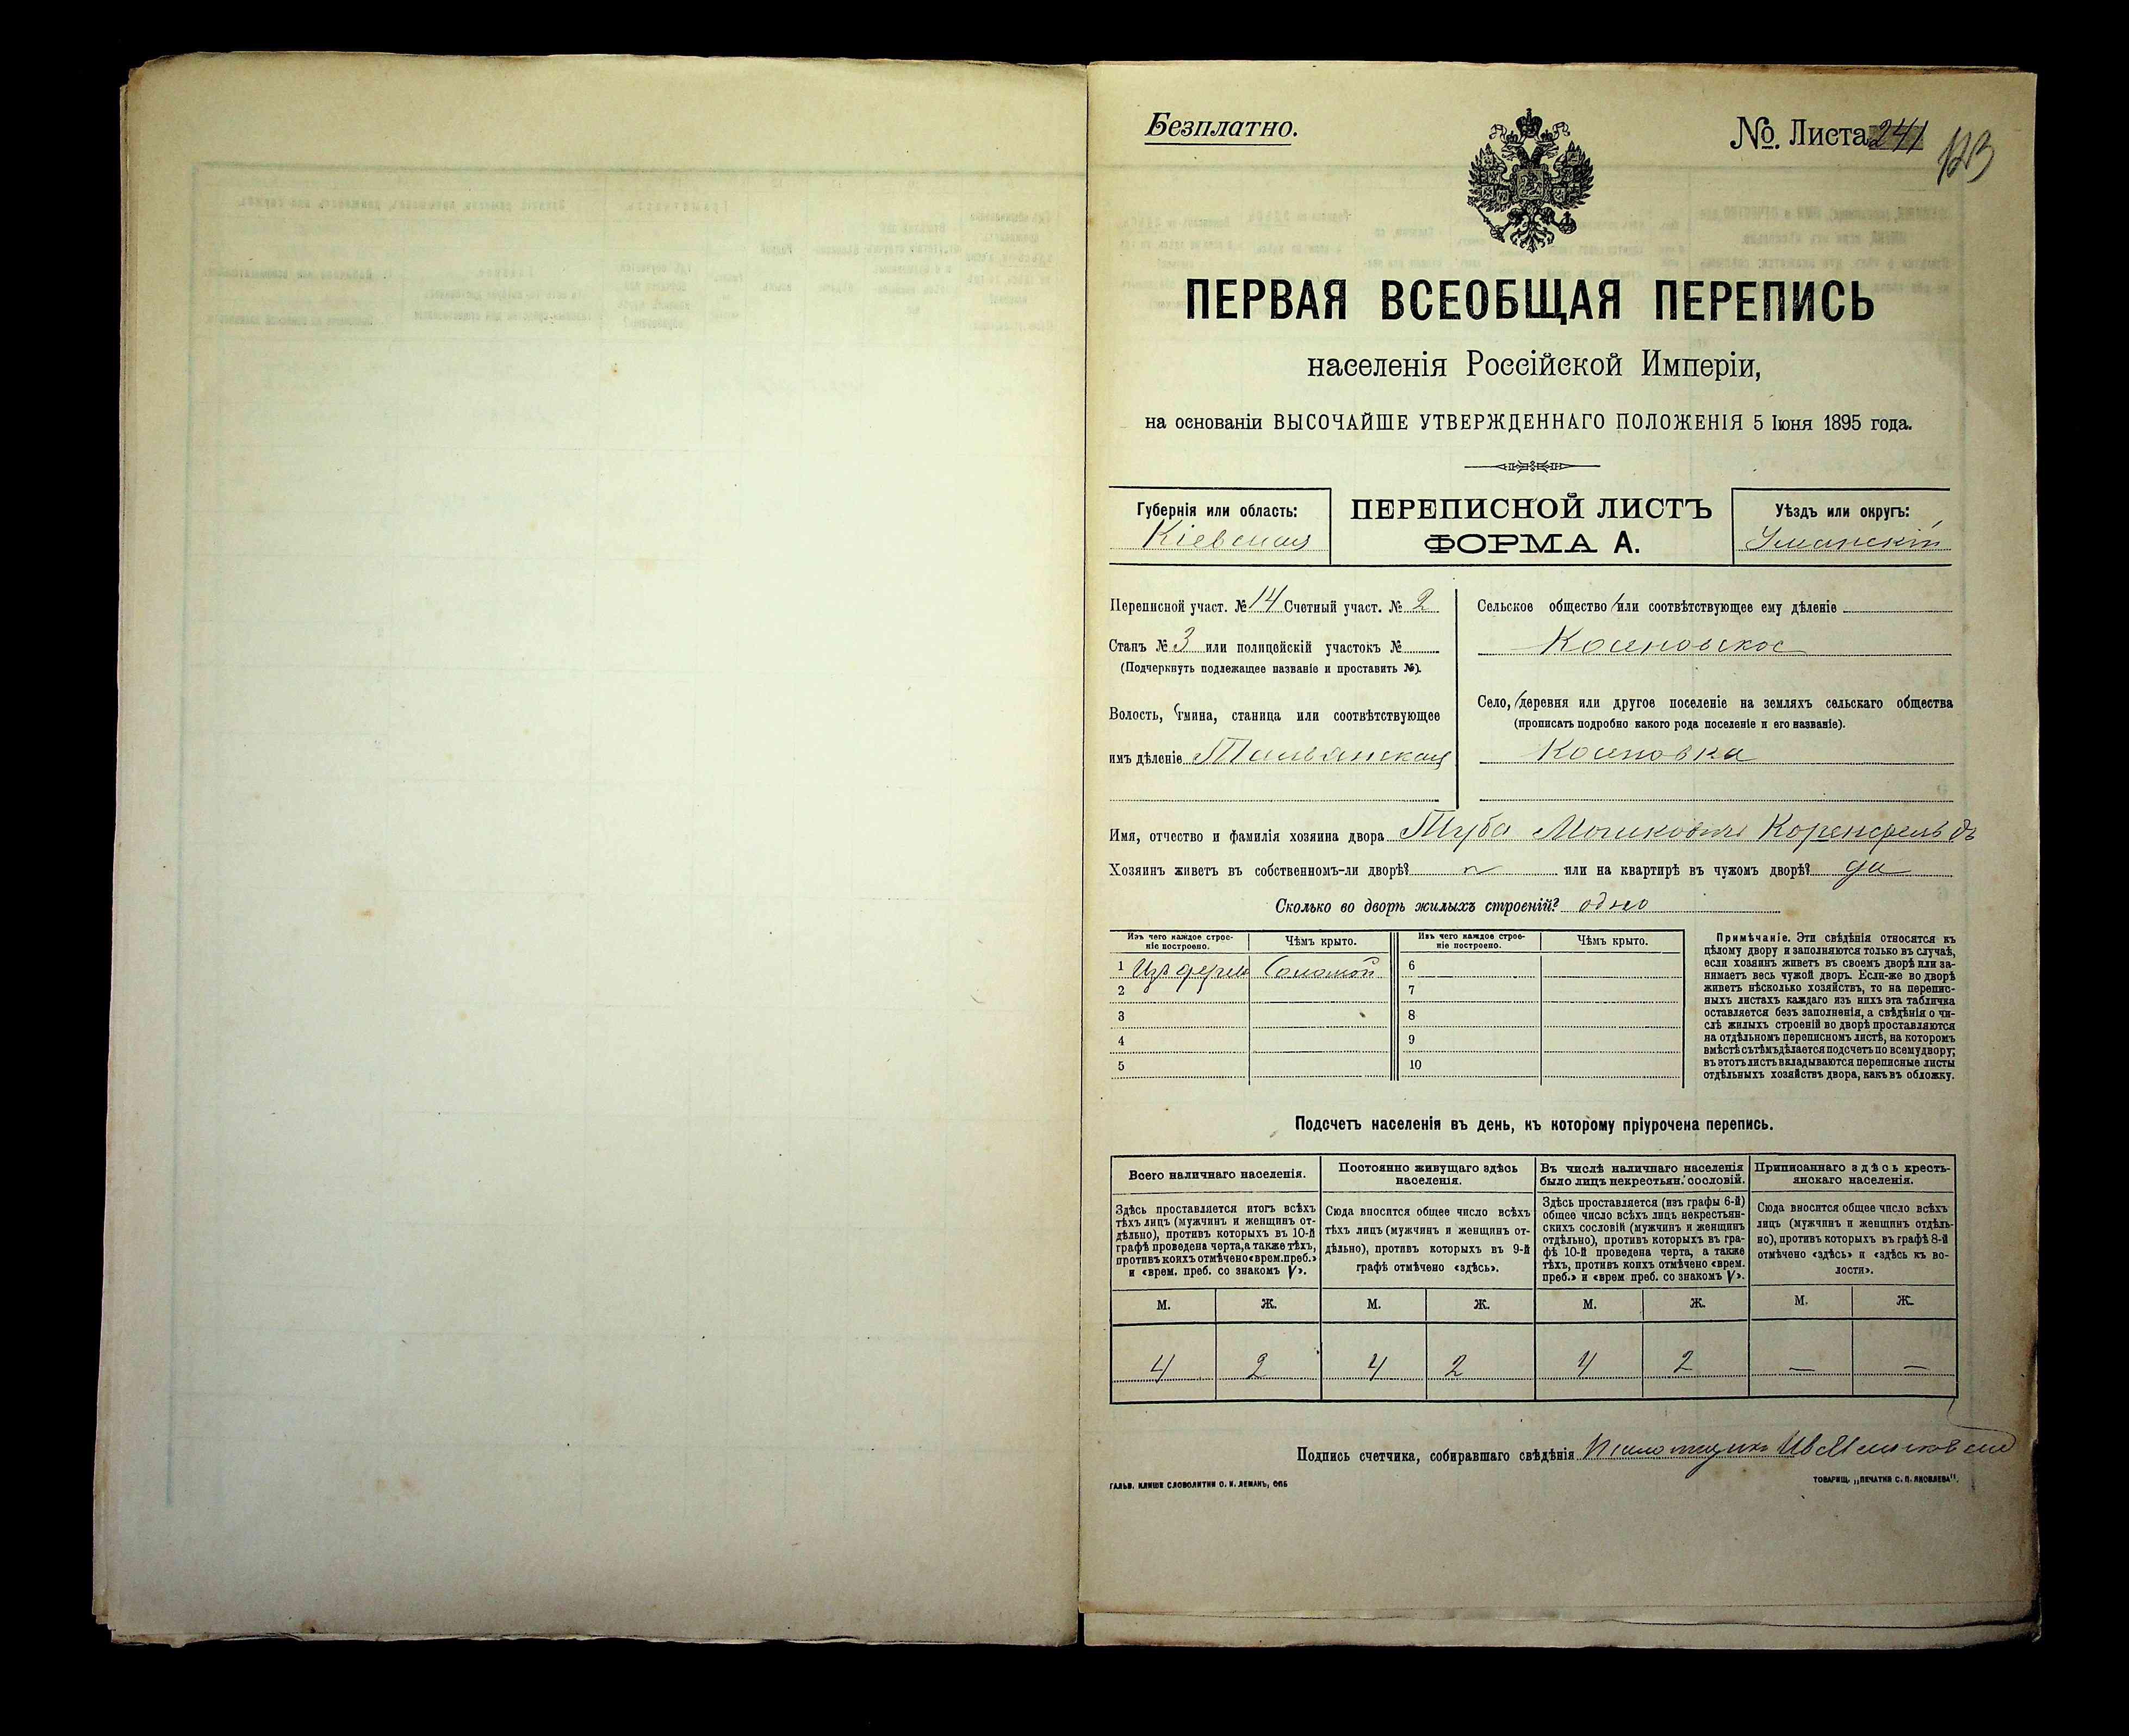 Безплатно.
№. Листа 241
123
ПЕРВАЯ ВСЕОБЩАЯ ПЕРЕПИСЬ
населенія Россійской Имперіи,
на основаніи ВЫСОЧАЙШЕ УТВЕРЖДЕННАГО ПОЛОЖЕНІЯ 5 Іюня 1895 года.
Губернія или область:
Кіевская
ПЕРЕПИСНОЙ ЛИСТЪ
ФОРМА А.
Уѣздъ или округъ:
Уманскій
Переписной участ. № 14 Счетный участ. № 2
Станъ № 3 или полицейскій участокъ №
(Подчеркнуть подлежащее названіе и проставить №).
Волость, гмина, станица или соотвѣтствующее
имъ дѣленіе Тальянская
Сельское общество или соотвѣтствующее ему дѣленіе
Косеновское
Село, деревня или другое поселеніе на земляхъ сельскаго общества
(прописать подробно какого рода поселеніе и его названіе).
Косеновка
Имя, отчество и фамилія хозяина двора Туба Мошковичъ Коренфельдъ
Хозяинъ живетъ въ собственномъ-ли дворѣ? или на квартирѣ въ чужомъ дворѣ? да
Сколько во дворѣ жилыхъ строеній? одно
Изъ чего каждое строе-
ніе построено.
Чѣмъ крыто.
Изъ чего каждое строе-
ніе построено.
Чѣмъ крыто.
1 Изъ дерев Соломой 6
2 7
3 8
4 9
5 10
Примѣчаніе. Эти свѣдѣнія относятся къ
цѣлому двору и заполняются только въ случаѣ,
если хозяинъ живетъ въ своемъ дворѣ или за-
нимаетъ весь чужой дворъ. Если-же во дворѣ
живетъ нѣсколько хозяйствъ, то на перепис-
ныхъ листахъ каждаго изъ нихъ эта табличка
оставляется безъ заполненія, а свѣдѣнія о чи-
слѣ жилыхъ строеній во дворѣ проставляются
на отдѣльномъ переписномъ листѣ, на которомъ
вмѣстѣ съ тѣмъ дѣлается подсчетъ по всему двору;
въ этотъ листъ вкладываются переписные листы
отдѣльныхъ хозяйствъ двора, какъ въ обложку.
Подсчетъ населенія въ день, къ которому пріурочена перепись.
Всего наличнаго населенія.
Здѣсь проставляется итогъ всѣхъ
тѣхъ лицъ (мужчинъ и женщинъ от-
дѣльно), противъ которыхъ въ 10-й
графѣ проведена черта, а также тѣхъ,
противъ коихъ отмѣчено «врем. преб.»
и «врем. преб. со знакомъ V».
Постоянно живущаго здѣсь
населенія.
Сюда вносится общее число всѣхъ
тѣхъ лицъ (мужчинъ и женщинъ от-
дѣльно), противъ которыхъ въ 9-й
графѣ отмѣчено «здѣсь».
Въ числѣ наличнаго населенія
было лицъ некрестьян. сословій.
Здѣсь проставляется (изъ графы 6-й)
общее число всѣхъ лицъ некрестьян-
скихъ сословій (мужчинъ и женщинъ
отдѣльно), противъ которыхъ въ гра-
фѣ 10-й проведена черта, а также
тѣхъ, противъ коихъ отмѣчено «врем.
преб.» и «врем преб. со знакомъ V».
Приписаннаго здѣсь кресть-
янскаго населенія.
Сюда вносится общее число всѣхъ
лицъ (мужчинъ и женщинъ отдѣль-
но), противъ которыхъ въ графѣ 8-й
отмѣчено «здѣсь» и «здѣсь къ во-
лости».
М. Ж. М. Ж. М. Ж. М. Ж.
4 2 4 2 4 2 — —
Подпись счетчика, собиравшаго свѣдѣнія
ГАЛЬВ. КЛИШЕ СЛОВОЛИТНИ О. И. ЛЕМАНЪ, СПБ
ТОВАРИЩ. „ПЕЧАТНЯ С. П. ЯКОВЛЕВА".